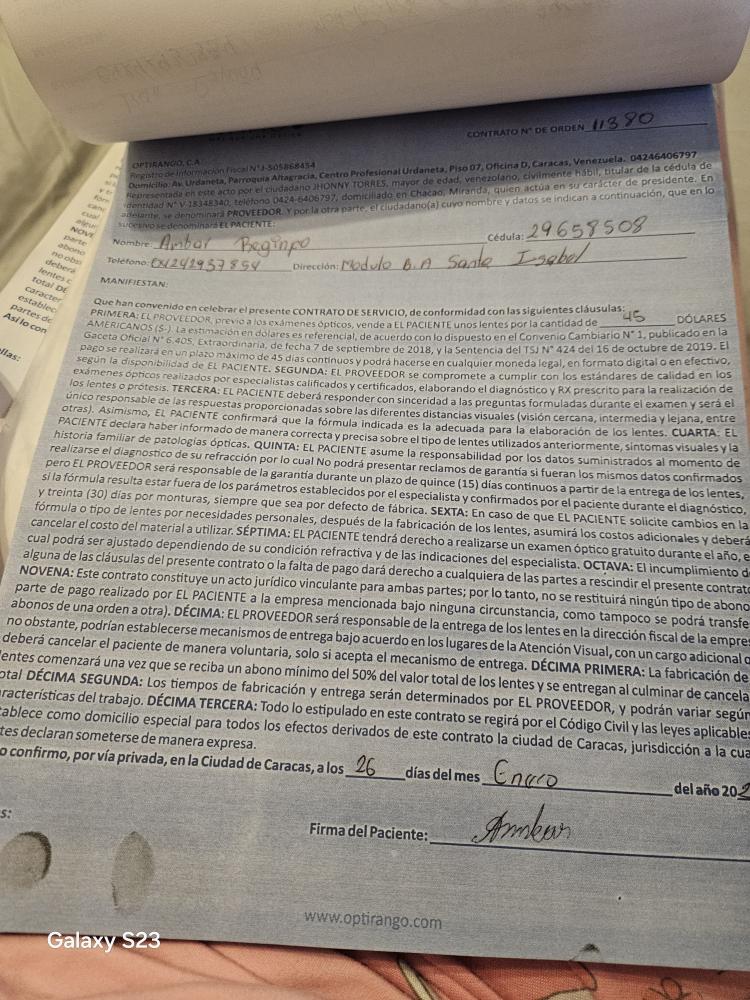 CONTRATO N° DE ORDEN 11380
OPTIRANGO, C.A
Registro de Información Fiscal N°J-505868454
Domicilio: Av. Urdaneta, Parroquia Altagracia, Centro Profesional Urdaneta, Piso 07, Oficina D, Caracas, Venezuela. 04246406797
Representada en este acto por el ciudadano JHONNY TORRES, mayor de edad, venezolano, civilmente hábil, titular de la cédula de
identidad N° V-18348340, teléfono 0424-6406797, domiciliado en Chacao, Miranda, quien actúa en su carácter de presidente. En
adelante, se denominará PROVEEDOR. Y por la otra parte, el ciudadano(a) cuyo nombre y datos se indican a continuación, que en lo
sucesivo se denominará EL PACIENTE:
Nombre: Ambar Cédula: 29658508
Teléfono: Dirección: Modulo B.A Santa Isabel
MANIFIESTAN:
Que han convenido en celebrar el presente CONTRATO DE SERVICIO, de conformidad con las siguientes cláusulas:
PRIMERA: EL PROVEEDOR, previo a los exámenes ópticos, vende a EL PACIENTE unos lentes por la cantidad de 45 DÓLARES
AMERICANOS ($-). La estimación en dólares es referencial, de acuerdo con lo dispuesto en el Convenio Cambiario N° 1, publicado en la
Gaceta Oficial N° 6.405, Extraordinaria, de fecha 7 de septiembre de 2018, y la Sentencia del TSJ N° 424 del 16 de octubre de 2019. El
pago se realizará en un plazo máximo de 45 días continuos y podrá hacerse en cualquier moneda legal, en formato digital o en efectivo,
según la disponibilidad de EL PACIENTE. SEGUNDA: EL PROVEEDOR se compromete a cumplir con los estándares de calidad en los
exámenes ópticos realizados por especialistas calificados y certificados, elaborando el diagnóstico y RX prescrito para la realización de
los lentes o prótesis. TERCERA: EL PACIENTE deberá responder con sinceridad a las preguntas formuladas durante el examen y será el
único responsable de las respuestas proporcionadas sobre las diferentes distancias visuales (visión cercana, intermedia y lejana, entre
otras). Asimismo, EL PACIENTE confirmará que la fórmula indicada es la adecuada para la elaboración de los lentes. CUARTA: EL
PACIENTE declara haber informado de manera correcta y precisa sobre el tipo de lentes utilizados anteriormente, síntomas visuales y la
historia familiar de patologías ópticas. QUINTA: EL PACIENTE asume la responsabilidad por los datos suministrados al momento de
realizarse el diagnostico de su refracción por lo cual No podrá presentar reclamos de garantía si fueran los mismos datos confirmados
pero EL PROVEEDOR será responsable de la garantía durante un plazo de quince (15) días continuos a partir de la entrega de los lentes,
si la fórmula resulta estar fuera de los parámetros establecidos por el especialista y confirmados por el paciente durante el diagnóstico,
y treinta (30) días por monturas, siempre que sea por defecto de fábrica. SEXTA: En caso de que EL PACIENTE solicite cambios en la
fórmula o tipo de lentes por necesidades personales, después de la fabricación de los lentes, asumirá los costos adicionales y deberá
cancelar el costo del material a utilizar. SÉPTIMA: EL PACIENTE tendrá derecho a realizarse un examen óptico gratuito durante el año, e
cual podrá ser ajustado dependiendo de su condición refractiva y de las indicaciones del especialista. OCTAVA: El incumplimiento d
alguna de las cláusulas del presente contrato o la falta de pago dará derecho a cualquiera de las partes a rescindir el presente contrat
NOVENA: Este contrato constituye un acto jurídico vinculante para ambas partes; por lo tanto, no se restituirá ningún tipo de abono
parte de pago realizado por EL PACIENTE a la empresa mencionada bajo ninguna circunstancia, como tampoco se podrá transfe
abonos de una orden a otra). DÉCIMA: EL PROVEEDOR será responsable de la entrega de los lentes en la dirección fiscal de la empre
no obstante, podrían establecerse mecanismos de entrega bajo acuerdo en los lugares de la Atención Visual, con un cargo adicional q
deberá cancelar el paciente de manera voluntaria, solo si acepta el mecanismo de entrega. DÉCIMA PRIMERA: La fabricación de
entes comenzará una vez que se reciba un abono mínimo del 50% del valor total de los lentes y se entregan al culminar de cancela
otal DÉCIMA SEGUNDA: Los tiempos de fabricación y entrega serán determinados por EL PROVEEDOR, y podrán variar según
racterísticas del trabajo. DÉCIMA TERCERA: Todo lo estipulado en este contrato se regirá por el Código Civil y las leyes aplicables
tablece como domicilio especial para todos los efectos derivados de este contrato la ciudad de Caracas, jurisdicción a la cua
tes declaran someterse de manera expresa.
o confirmo, por vía privada, en la Ciudad de Caracas, a los 26 días del mes Enero del año 202
s:
Firma del Paciente: Ambar
www.optirango.com
Galaxy S23